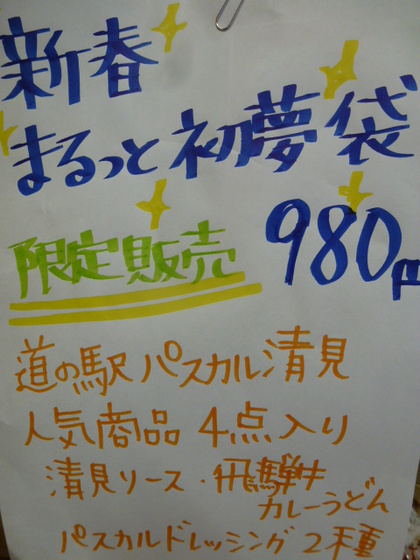 新春
まるっと初夢袋
限定販売 980円
道の駅パスカル清見
人気商品 4点入り
清見ソース・飛騨牛
カレーうどん
パスカルドレッシング2種